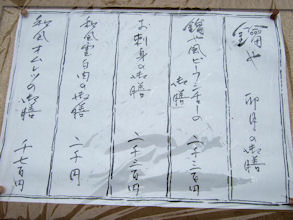 卯月の御膳
鍋風ビーフシチューの御膳 二千三百円
お刺身の御膳 二千三百円
和風蛋白肉の御膳 二千円
和風オムレツの御膳 千七百円